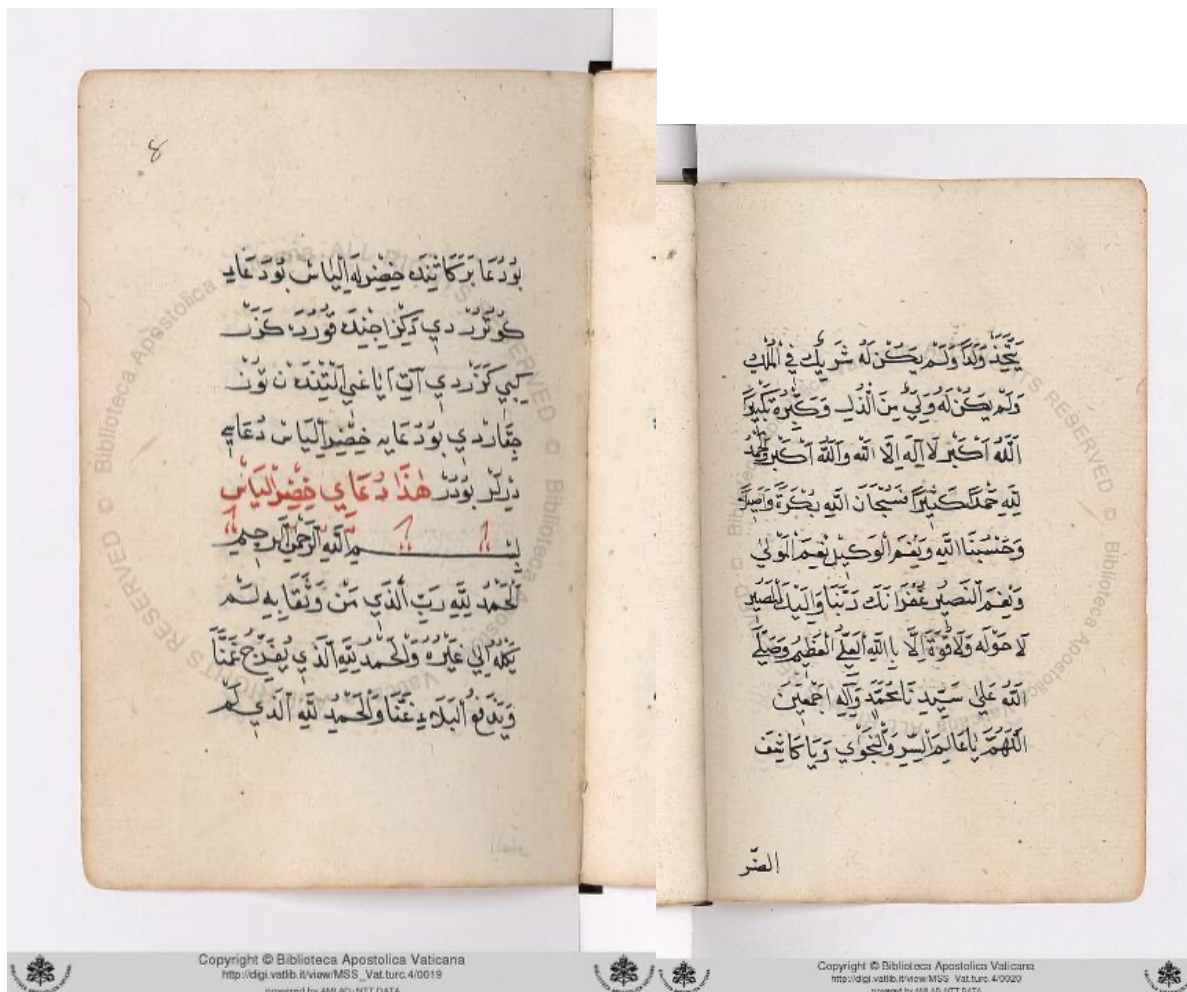 8
بُودُعَا بَرَكَاتِنْدَه خِضِرلَه اِلْيَاسْ بُودُعَايِ
كُوتُرُرْ دي دَكِزْ اِجِنْدَه قُورُدَه كَزَرْ
كِبِي كَزَرْدِي آتْ اَيَاغِي اَلْتِنْدَه نْ تُوْنْ
چِقَارْدِي بُودُعَايَه خِضِرْ اِلْيَاسْ دُعَاسِي
دِرْلَرْ بُودُرْ هٰذَا دُعَايِ خِضِرْ اِلْيَاسْ
بِسْمِ اللّٰهِ الرَّحْمٰنِ الرَّحِيمِ
اَلْحَمْدُ لِلّٰهِ رَبِّ الَّذِي مَنْ وَثَقَا بِهِ لَمْ
يَكِلْهُ اِلَى غَيْرِهِ وَالْحَمْدُ لِلّٰهِ الَّذِي يُفَرِّجُ غَمَّنَا
وَيَدْفَعُ الْبَلَاءِ عَنَّا وَالْحَمْدُ لِلّٰهِ الَّذِي لَمْ
Copyright © Biblioteca Apostolica Vaticana
http://digi.vatlib.it/view/MSS_Vat.turc.4/0019
powered by AMLAD-NTT DATA
يَتَّخِذْ وَلَدًا وَلَمْ يَكُنْ لَهُ شَرِيكٌ فِي الْمُلْكِ
وَلَمْ يَكُنْ لَهُ وَلِيٌّ مِنَ الذُّلِّ وَكَبِّرْهُ تَكْبِيرًا
اَللّٰهُ اَكْبَرْ لَا اِلَهَ اِلَّا اللّٰهُ وَاللّٰهُ اَكْبَرْ وَالْحَمْدُ
لِلّٰهِ حَمْدًا كَثِيرًا فَسُبْحَانَ اللّٰهِ بُكْرَةً وَاَصِيلًا
وَحَسْبُنَا اللّٰهِ وَنِعْمَ الْوَكِيلُ نِعْمَ الْمَوْلَى
وَنِعْمَ النَّصِيرُ غُفْرَانَكَ رَبَّنَا وَاِلَيْكَ الْمَصِيرُ
لَا حَوْلَه وَلَا قُوَّةَ اِلَّا بِاللّٰهِ الْعَلِيِّ الْعَظِيمِ وَصَلَّى
اللّٰهُ عَلَى سَيِّدِنَا مُحَمَّدٍ وَآلِهِ اَجْمَعِينَ
اَللّٰهُمَّ يَا عَالِمَ السِّرِّ وَالنَّجْوَي وَيَا كَاشِفَ
الضُّر
Copyright © Biblioteca Apostolica Vaticana
http://digi.vatlib.it/view/MSS_Vat.turc.4/0020
powered by AMLAD-NTT DATA